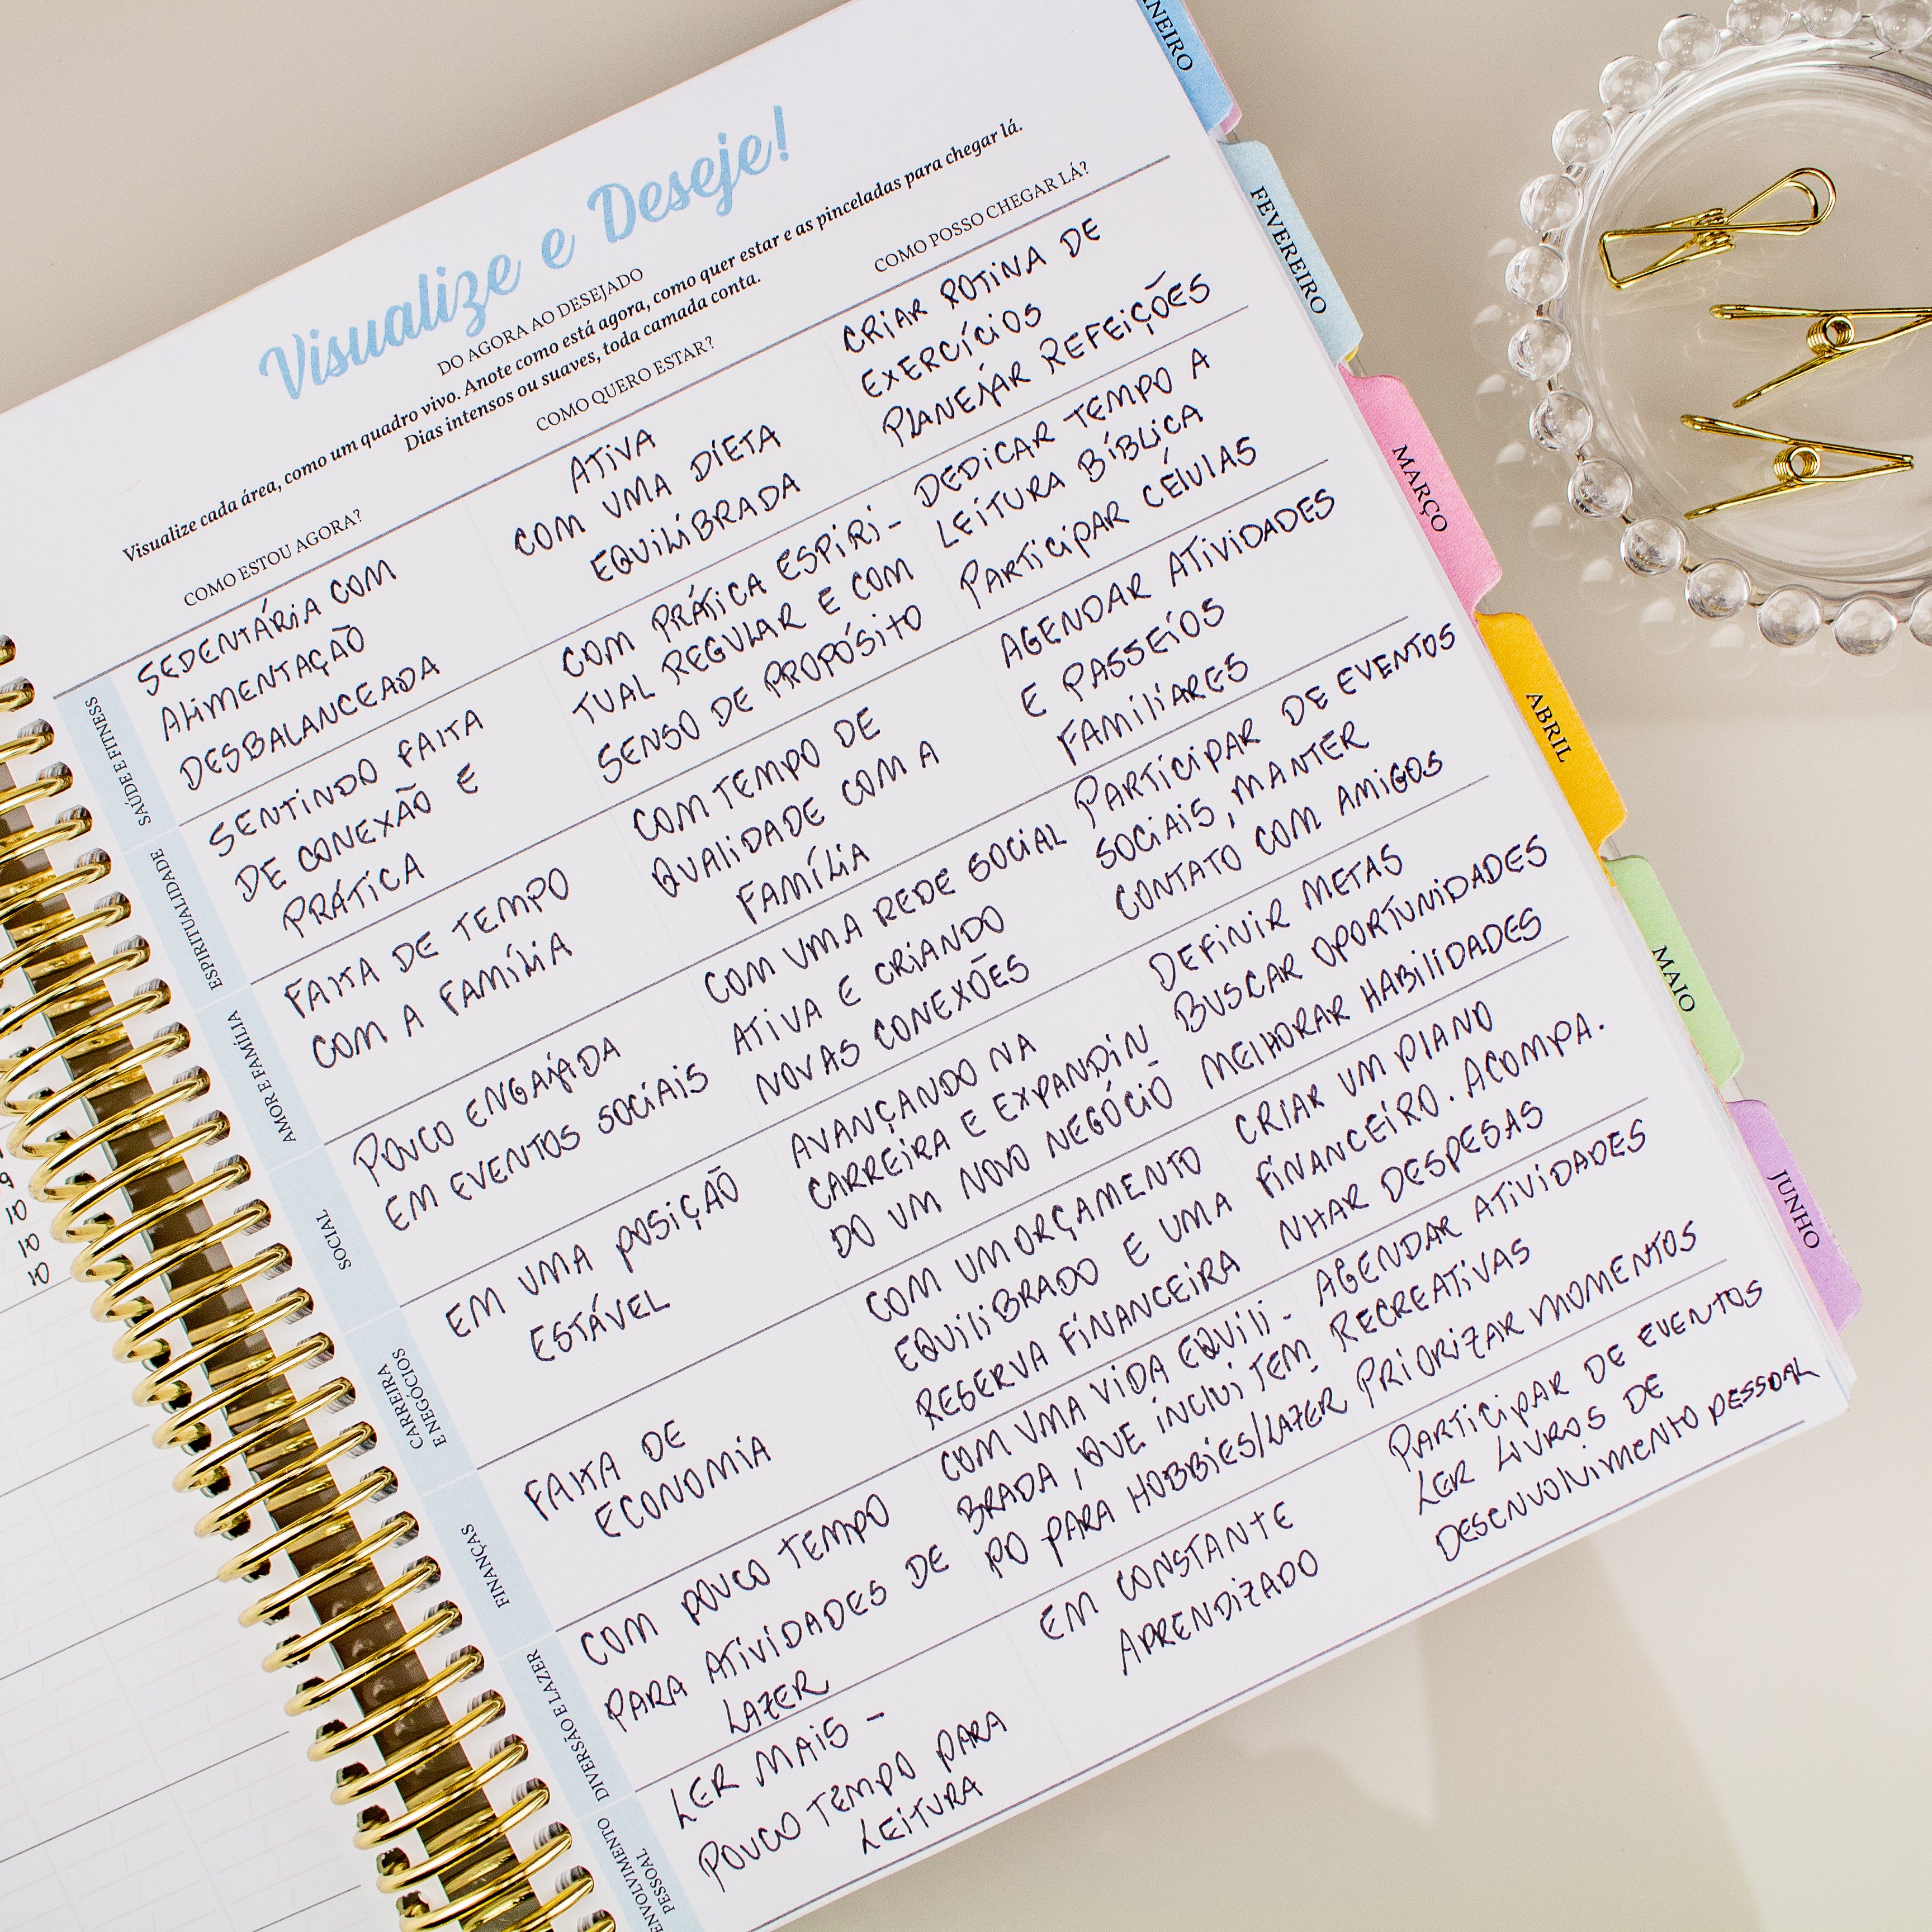 Visualize e Deseje!
DO AGORA AO DESEJADO
Visualize cada área, como um quadro vivo. Anote como está agora, como quer estar e as pinceladas para chegar lá.
Dias intensos ou suaves, toda camada conta.
COMO ESTOU AGORA?
COMO QUERO ESTAR?
COMO POSSO CHEGAR LÁ?
SAÚDE E FITNESS
SEDENTÁRIA COM
ALIMENTAÇÃO
DESBALANCEADA
ATIVA
COM UMA DIETA
EQUILIBRADA
CRIAR ROTINA DE
EXERCÍCIOS
PLANEJAR REFEIÇÕES
ESPIRITUALIDADE
SENTINDO FALTA
DE CONEXÃO E
PRÁTICA
COM PRÁTICA ESPIRI-
TUAL REGULAR E COM
SENSO DE PROPÓSITO
DEDICAR TEMPO A
LEITURA BÍBLICA
PARTICIPAR CÉLULAS
AMOR E FAMÍLIA
FALTA DE TEMPO
COM A FAMÍLIA
COM TEMPO DE
QUALIDADE COM A
FAMÍLIA
AGENDAR ATIVIDADES
E PASSEIOS
FAMILIARES
SOCIAL
POUCO ENGAJADA
EM EVENTOS SOCIAIS
COM UMA REDE SOCIAL
ATIVA E CRIANDO
NOVAS CONEXÕES
PARTICIPAR DE EVENTOS
SOCIAIS, MANTER
CONTATO COM AMIGOS
CARREIRA
E NEGÓCIOS
EM UMA POSIÇÃO
ESTÁVEL
AVANÇANDO NA
CARREIRA E EXPANDIN
DO UM NOVO NEGÓCIO
DEFINIR METAS
BUSCAR OPORTUNIDADES
MELHORAR HABILIDADES
FINANÇAS
FALTA DE
ECONOMIA
COM UM ORÇAMENTO
EQUILIBRADO E UMA
RESERVA FINANCEIRA
CRIAR UM PLANO
FINANCEIRO. ACOMPA.
NHAR DESPESAS
DIVERSÃO E LAZER
COM POUCO TEMPO
PARA ATIVIDADES DE
LAZER
COM UMA VIDA EQUILI-
BRADA, QUE INCLUI TEM
PO PARA HOBBIES/LAZER
AGENDAR ATIVIDADES
RECREATIVAS
PRIORIZAR MOMENTOS
ENVOLVIMENTO
PESSOAL
LER MAIS -
POUCO TEMPO PARA
LEITURA
EM CONSTANTE
APRENDIZADO
PARTICIPAR DE EVENTOS
LER LIVROS DE
DESENVOLVIMENTO PESSOAL
NEIRO
FEVEREIRO
MARÇO
ABRIL
MAIO
JUNHO
9
10
10
10